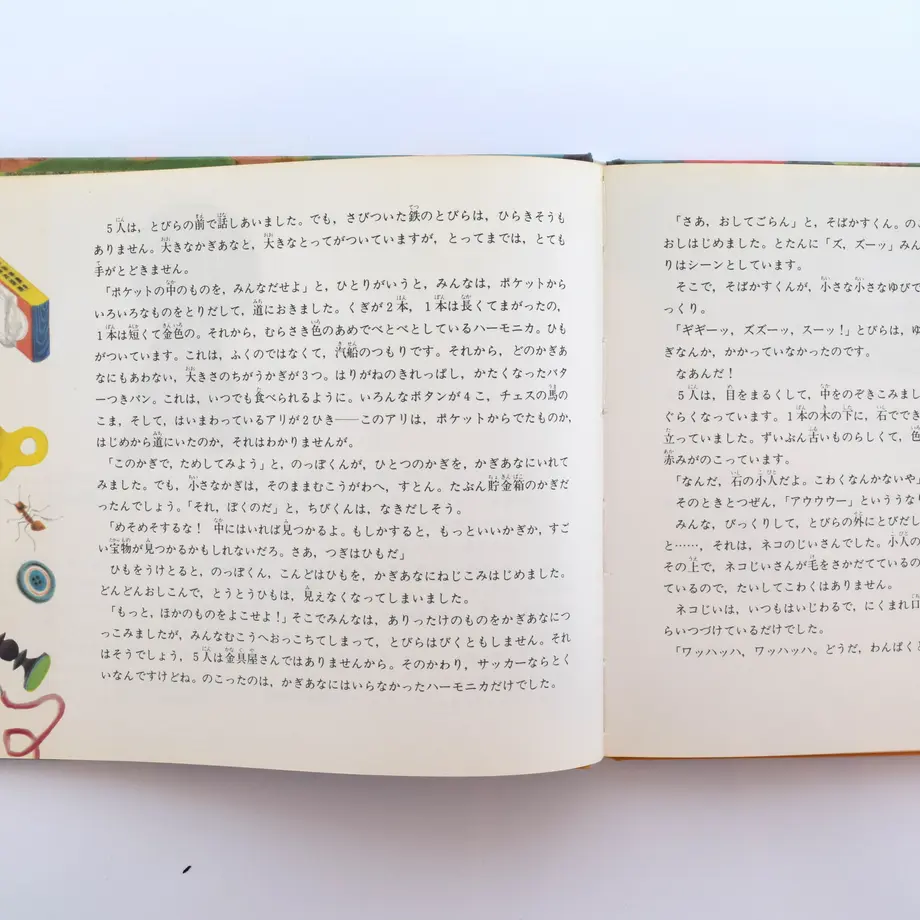 5人は，とびらの前で話しあいました。でも，さびついた鉄のとびらは，ひらきそうも
ありません。大きなかぎあなと，大きなとってがついていますが，とってまでは，とても
手がとどきません。
「ポケットの中のものを，みんなだせよ」と，ひとりがいうと，みんなは，ポケットから
いろいろなものをとりだして，道におきました。くぎが2本，1本は長くてまがったの，
1本は短くて金色の。それから，むらさき色のあめでべとべとしているハーモニカ。ひも
がついています。これは，ふくのではなくて，汽船のつもりです。それから，どのかぎあ
なにもあわない，大きさのちがうかぎが3つ。はりがねのきれっぱし，かたくなったバタ
ーつきパン。これは，いつでも食べられるように。いろんなボタンが4こ，チェスの馬の
こま，そして，はいまわっているアリが2ひき──このアリは，ポケットからでたものか，
はじめから道にいたのか，それはわかりませんが。
「このかぎで，ためしてみよう」と，のっぽくんが，ひとつのかぎを，かぎあなにいれて
みました。でも，小さなかぎは，そのままむこうがわへ，すとん。たぶん貯金箱のかぎだ
ったんでしょう。「それ，ぼくのだ」と，ちびくんは，なきだしそう。
「めそめそするな！ 中にはいれば見つかるよ。もしかすると，もっといいかぎか，すご
い宝物が見つかるかもしれないだろ。さあ，つぎはひもだ」
ひもをうけとると，のっぽくん，こんどはひもを，かぎあなにねじこみはじめました。
どんどんおしこんで，とうとうひもは，見えなくなってしまいました。
「もっと，ほかのものをよこせよ！」そこでみんなは，ありったけのものをかぎあなにつ
っこみましたが，みんなむこうへおっこちてしまって，とびらはびくともしません。それ
はそうでしょう，5人は金具屋さんではありませんから。そのかわり，サッカーならとく
いなんですけどね。のこったのは，かぎあなにはいらなかったハーモニカだけでした。
「さあ，おしてごらん」と，そばかすくん。のこ
おしはじめました。とたんに「ズ，ズーッ」みん
りはシーンとしています。
そこで，そばかすくんが，小さな小さなゆびで
っくり。
「ギギーッ，ズズーッ，スーッ！」とびらは，ゆ
ぎなんか，かかっていなかったのです。
なあんだ！
5人は，目をまるくして，中をのぞきこみまし
ぐらくなっています。1本の木の下に，石ででき
立っていました。ずいぶん古いものらしくて，色
赤みがのこっています。
「なんだ，石の小人だよ。こわくなんかないや」
そのときとつぜん，「アウウウー」といううなり
みんな，びっくりして，とびらの外にとびだし
と……，それは，ネコのじいさんでした。小人の
その上で，ネコじいさんが毛をさかだてているの
ているので，たいしてこわくはありません。
ネコじいは，いつもはいじわるで，にくまれ口
らいつづけているだけでした。
「ワッハッハ，ワッハッハ。どうだ，わんぱくど